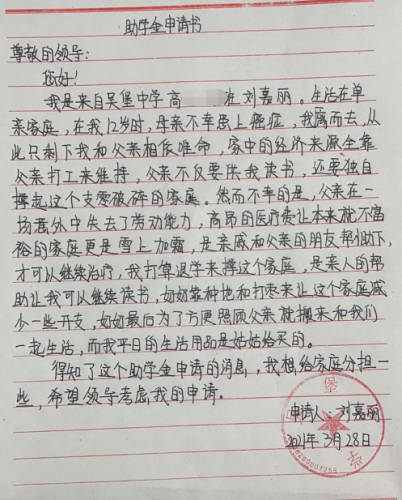 助学金申请书
尊敬的领导:
您好!
我是来自吴堡中学高 刘嘉丽。生活在单
亲家庭,在我12岁时,母亲不幸患上癌症,我离而去,从
此只剩下我和父亲相依唯命,家中的经济来源全靠
父亲打工来维持,父亲不仅要供我读书,还要独自
撑起这个支零破碎的家庭。然而不幸的是,父亲在一
场意外中失去了劳动能力,高昂的医疗费让本来就不富
裕的家庭更是雪上加霜,是亲戚和父亲的朋友帮助下,
才可以继续治疗,我打算退学来撑这个家庭,是亲人的帮
助让我可以继续读书,奶奶靠种地和打枣来让这个家庭减
少一些开支,奶奶最后为了方便照顾父亲就搬来和我们
一起生活,而我平日的生活用品是姑姑给买的。
得知了这个助学金申请的消息,我想给家庭分担一
些,希望领导考虑我的申请。
申请人:刘嘉丽
2021年3月28日
堡